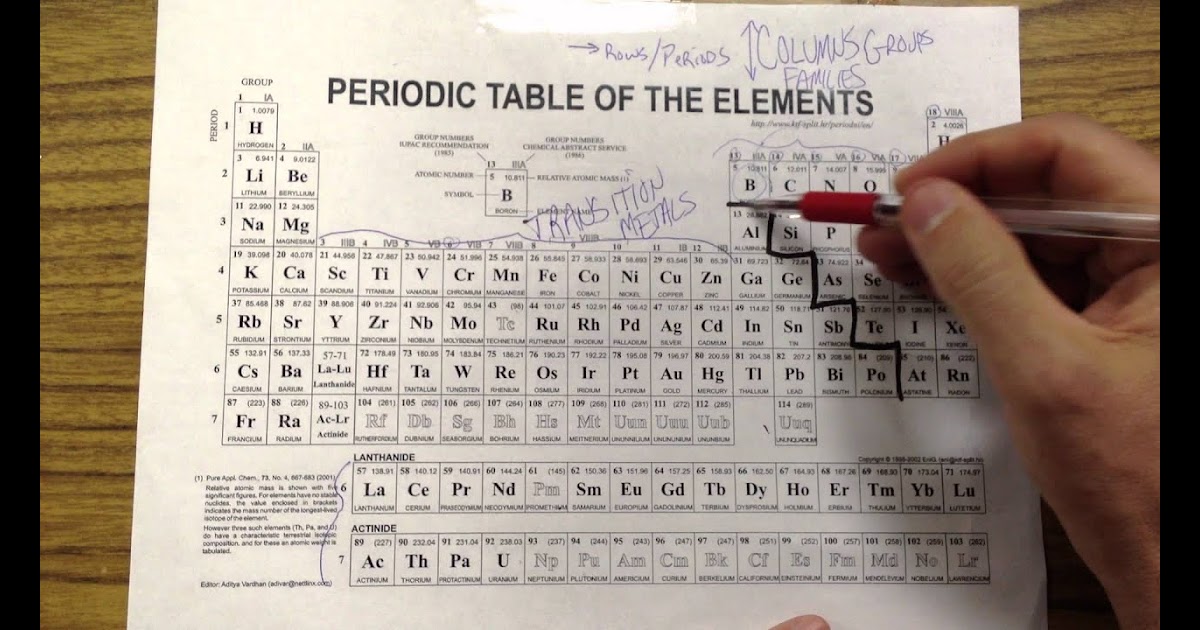 → Rows/Periods ↕ COLUMNS GROUPS
FAMILIES
PERIODIC TABLE OF THE ELEMENTS
http://www.ktf-split.hr/periodni/en/
GROUP
PERIOD
1 IA
18 VIIIA
1 1.0079 2 4.0026
1 H
HYDROGEN 2 IIA
GROUP NUMBERS
IUPAC RECOMMENDATION
(1985)
GROUP NUMBERS
CHEMICAL ABSTRACT SERVICE
(1986)
13 IIIA
ATOMIC NUMBER 5 10.811 RELATIVE ATOMIC MASS (1)
SYMBOL B
BORON
TRANSITION
METALS
13 IIIA 14 IVA 15 VA 16 VIA 17
3 6.941 4 9.0122 5 10.811 6 12.011 7 14.007 8 15.999
2 Li Be B C N O
LITHIUM BERYLLIUM
11 22.990 12 24.305 13
3 Na Mg Al Si P
SODIUM MAGNESIUM ALUMINUM SILICON PHOSPHORUS
3 IIIB 4 IVB 5 VB 6 7 VIIB 8 9 10 11 IB 12 IIB
VIIIB
19 39.098 20 40.078 21 44.956 22 47.867 23 50.942 24 51.996 25 54.938 26 55.845 27 58.933 28 58.693 29 63.546 30 65.39 31 69.723 32 72.64 33 74.922 34
4 K Ca Sc Ti V Cr Mn Fe Co Ni Cu Zn Ga Ge As Se
POTASSIUM CALCIUM SCANDIUM TITANIUM VANADIUM CHROMIUM MANGANESE IRON COBALT NICKEL COPPER ZINC GALLIUM GERMANIUM ARSENIC SELENIUM
37 85.468 38 87.62 39 88.906 40 91.224 41 92.906 42 95.94 43 (98) 44 101.07 45 102.91 46 106.42 47 107.87 48 112.41 49 114.82 50 118.71 51 121.76 52 127.60
5 Rb Sr Y Zr Nb Mo Tc Ru Rh Pd Ag Cd In Sn Sb Te I Xe
RUBIDIUM STRONTIUM YTTRIUM ZIRCONIUM NIOBIUM MOLYBDENUM TECHNETIUM RUTHENIUM RHODIUM PALLADIUM SILVER CADMIUM INDIUM TIN ANTIMONY IODINE XENON
55 132.91 56 137.33 57-71 72 178.49 73 180.95 74 183.84 75 186.21 76 190.23 77 192.22 78 195.08 79 196.97 80 200.59 81 204.38 82 207.2 83 208.98 84 (209) 85 (210) 86 (222)
6 Cs Ba La-Lu Hf Ta W Re Os Ir Pt Au Hg Tl Pb Bi Po At Rn
CAESIUM BARIUM Lanthanide HAFNIUM TANTALUM TUNGSTEN RHENIUM OSMIUM IRIDIUM PLATINUM GOLD MERCURY THALLIUM LEAD BISMUTH POLONIUM ASTATINE RADON
87 (223) 88 (226) 89-103 104 (261) 105 (262) 106 (266) 107 (264) 108 (277) 109 (268) 110 (281) 111 (272) 112 (285) 114 (289)
7 Fr Ra Ac-Lr Rf Db Sg Bh Hs Mt Uun Uuu Uub Uuq
FRANCIUM RADIUM Actinide RUTHERFORDIUM DUBNIUM SEABORGIUM BOHRIUM HASSIUM MEITNERIUM UNUNNILIUM UNUNUNIUM UNUNBIUM UNUNQUADIUM
LANTHANIDE
Copyright © 1998-2002 EniG. (eni@ktf-split.hr)
57 138.91 58 140.12 59 140.91 60 144.24 61 (145) 62 150.36 63 151.96 64 157.25 65 158.93 66 162.50 67 164.93 68 167.26 69 168.93 70 173.04 71 174.97
6 La Ce Pr Nd Pm Sm Eu Gd Tb Dy Ho Er Tm Yb Lu
LANTHANUM CERIUM PRASEODYMIUM NEODYMIUM PROMETHIUM SAMARIUM EUROPIUM GADOLINIUM TERBIUM DYSPROSIUM HOLMIUM ERBIUM THULIUM YTTERBIUM LUTETIUM
ACTINIDE
89 (227) 90 232.04 91 231.04 92 238.03 93 (237) 94 (244) 95 (243) 96 (247) 97 (247) 98 (251) 99 (252) 100 (257) 101 (258) 102 (259) 103 (262)
7 Ac Th Pa U Np Pu Am Cm Bk Cf Es Fm Md No Lr
ACTINIUM THORIUM PROTACTINIUM URANIUM NEPTUNIUM PLUTONIUM AMERICIUM CURIUM BERKELIUM CALIFORNIUM EINSTEINIUM FERMIUM MENDELEVIUM NOBELIUM LAWRENCIUM
(1) Pure Appl. Chem., 73, No. 4, 667-683 (2001)
Relative atomic mass is shown with five
significant figures. For elements have no stable
nuclides, the value enclosed in brackets
indicates the mass number of the longest-lived
isotope of the element.
However three such elements (Th, Pa, and U)
do have a characteristic terrestrial isotopic
composition, and for these an atomic weight is
tabulated.
Editor: Aditya Vardhan (adivar@nettlinx.com)